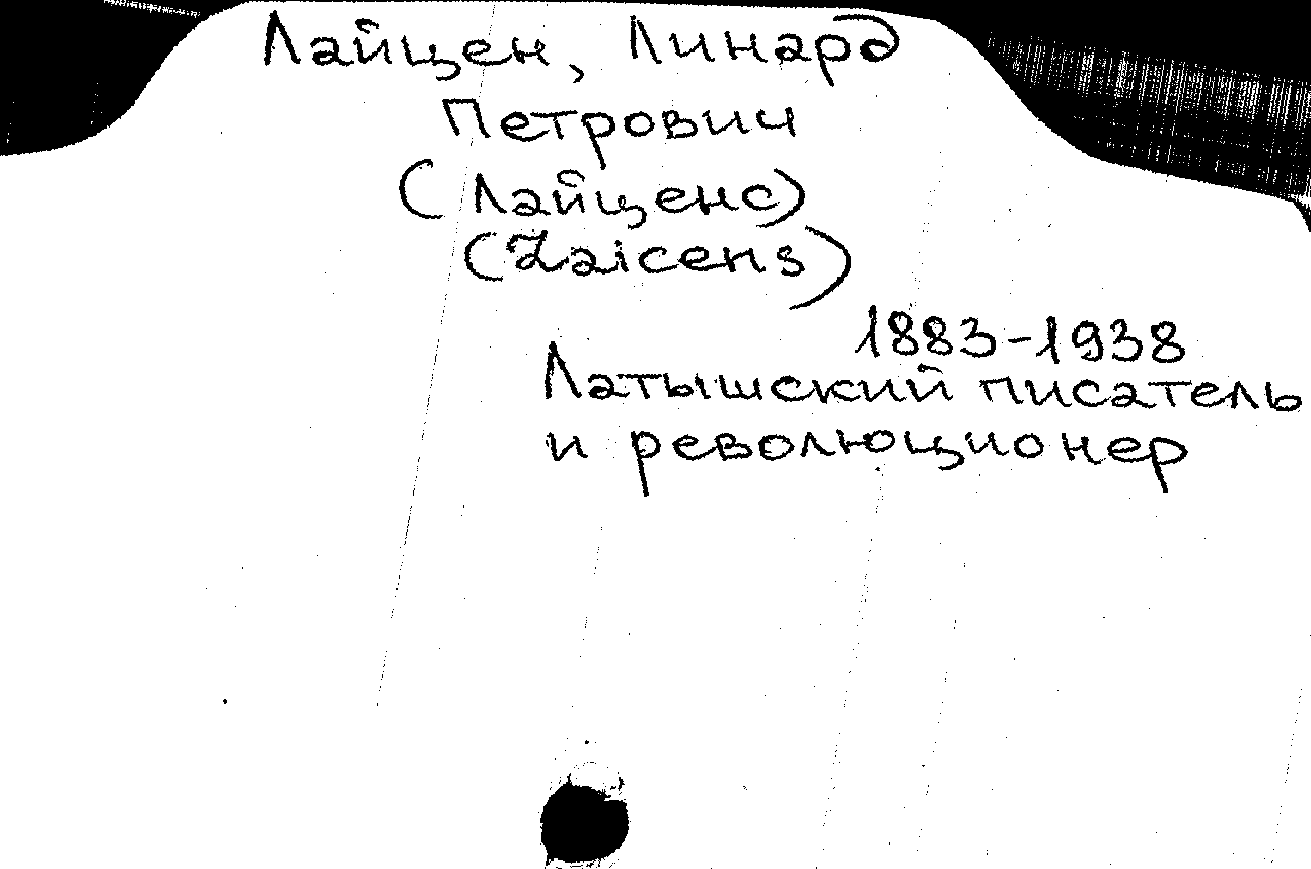 Лайцен, Линард
Петрович
(Лайценс)
(Laicens)
1883-1938
Латышский писатель
и революционер